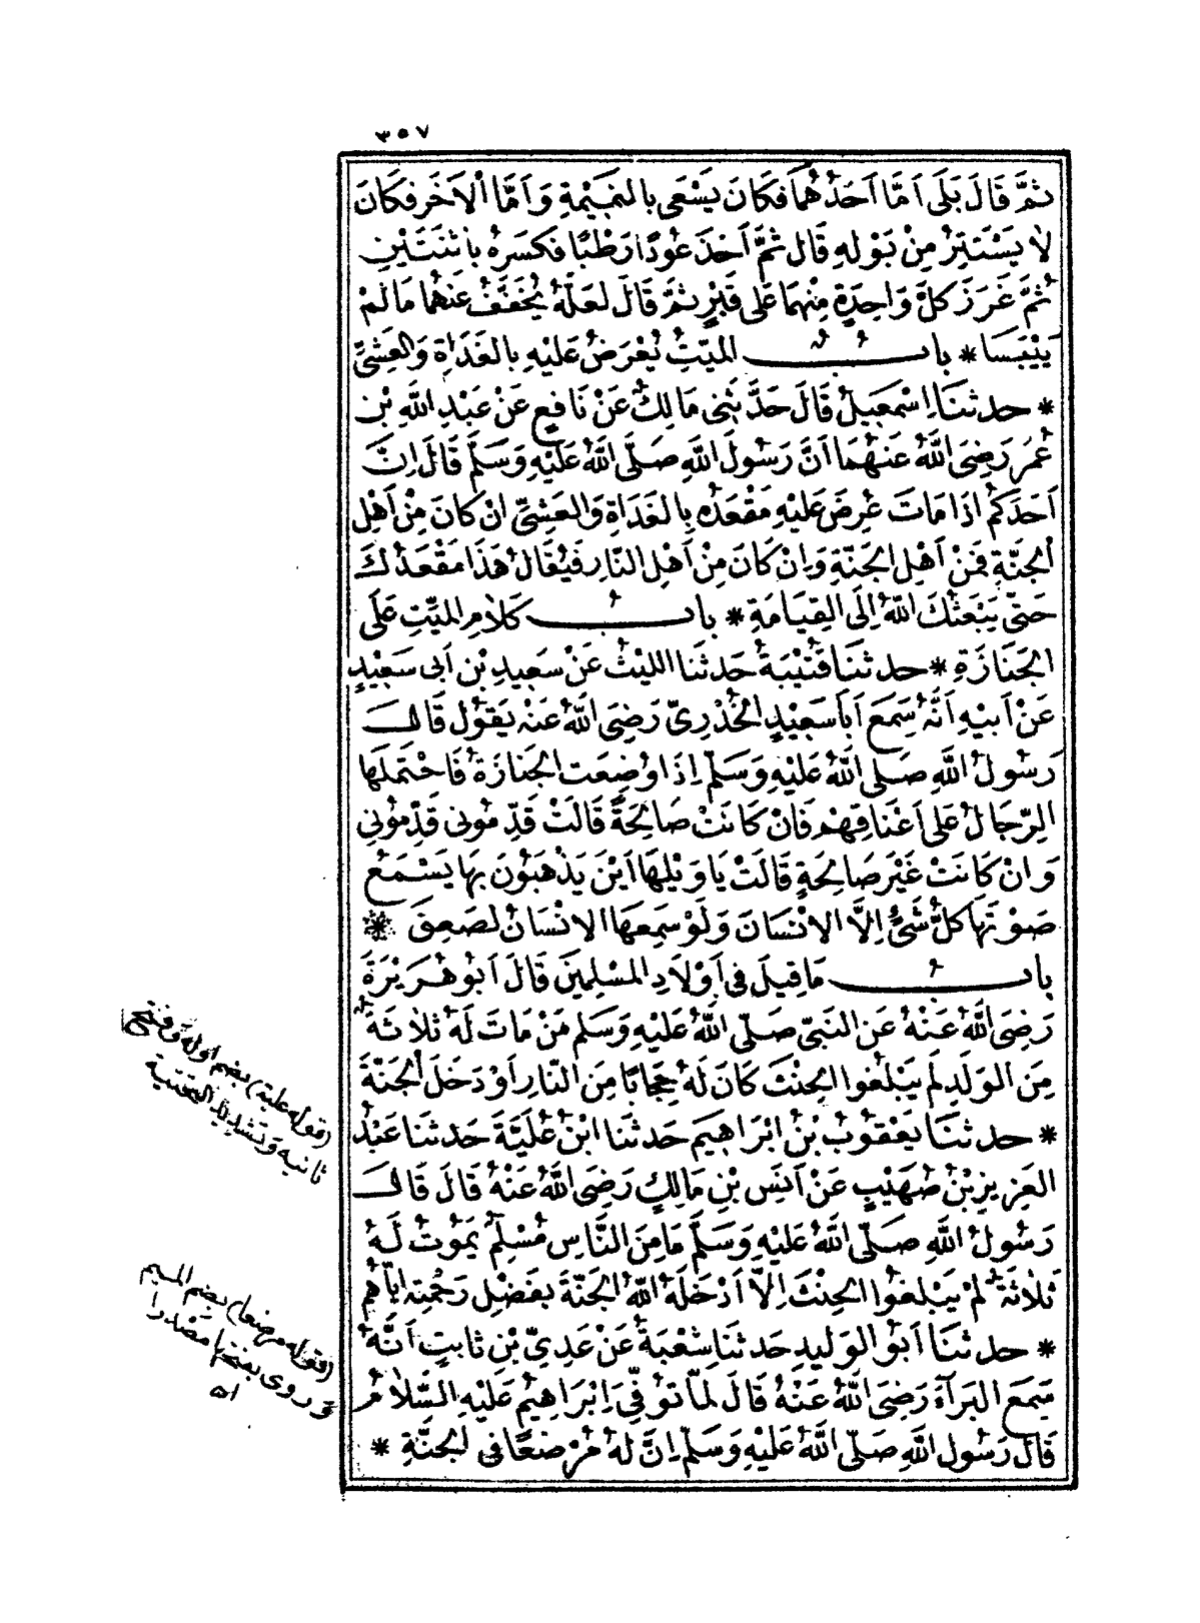 ٣٥٧
ثُمَّ قَالَ بَلَى اَمَّا اَحَدُهُمَا فَكَانَ يَسْعَى بِالنَّمِيْمَةِ وَاَمَّا اْلاَخَرُ فَكَانَ
لاَ يَسْتَتِرُ مِنْ بَوْلِهِ قَالَ ثُمَّ اَخَذَ عُودًا رَطْبًا فَكَسَرَهُ بِاثْنَتَيْنِ
ثُمَّ غَرَزَ كُلَّ وَاحِدَةٍ مِنْهُمَا عَلَى قَبْرٍ ثُمَّ قَالَ لَعَلَّهُ يُخَفَّفُ عَنْهُمَا مَا لَمْ
يَيْبَسَا * بابُ المَيِّتُ يُعْرَضُ عَلَيْهِ بِالغَدَاةِ وَالعَشِىِّ
* حدثنَا اِسْمَعِيلُ قَالَ حَدَّثَنِى مَالِكٌ عَنْ نَافِعٍ عَنْ عَبْدِ اللَّهِ بْنِ
عُمَرَ رَضِىَ اللَّهُ عَنْهُمَا اَنَّ رَسُولَ اللَّهِ صَلَّى اللَّهُ عَلَيْهِ وَسَلَّمَ قَالَ اِنَّ
اَحَدَكُمْ اِذَا مَاتَ عُرِضَ عَلَيْهِ مَقْعَدُهُ بِالغَدَاةِ وَالعَشِىِّ اِنْ كَانَ مِنْ اَهْلِ
الجَنَّةِ فَمِنْ اَهْلِ الجَنَّةِ وَاِنْ كَانَ مِنْ اَهْلِ النَّارِ فَيُقَالُ هَذَا مَقْعَدُكَ
حَتَّى يَبْعَثَكَ اللَّهُ اِلَى القِيَامَةِ * بابُ كَلاَمِ المَيِّتِ عَلَى
الجَنَازَةِ * حدثنَا قُتَيْبَةُ حَدثنَا اللَّيْثُ عَنْ سَعِيدِ بْنِ اَبِى سَعِيْدٍ
عَنْ اَبِيْهِ اَنَّهُ سَمِعَ اَبَا سَعِيْدٍ الخُدْرِىَّ رَضِىَ اللَّهُ عَنْهُ يَقُولُ قَالَ
رَسُولُ اللَّهِ صَلَّى اللَّهُ عَلَيْهِ وَسَلَّمَ اِذَا وُضِعَتِ الجَنَازَةُ فَاحْتَمَلَهَا
الرِّجَالُ عَلَى اَعْنَاقِهِمْ فَاِنْ كَانَتْ صَالِحَةً قَالَتْ قَدِّمُونِى قَدِّمُونِى
وَاِنْ كَانَتْ غَيْرَ صَالِحَةٍ قَالَتْ يَا وَيْلَهَا اَيْنَ يَذْهَبُوْنَ بِهَا يَسْمَعُ
صَوْتَهَا كُلُّ شَىْءٍ اِلاَّ الاِنْسَانَ وَلَوْ سَمِعَهَا الاِنْسَانُ لَصَعِقَ *
بابُ مَا قِيلَ فِى اَوْلاَدِ المُسْلِمِينَ قَالَ اَبُو هُرَيْرَةَ
رَضِىَ اللَّهُ عَنْهُ عَنِ النَّبِىِّ صَلَّى اللَّهُ عَلَيْهِ وَسَلَّمَ مَنْ مَاتَ لَهُ ثَلاَثَةٌ
مِنَ الوَلَدِ لَمْ يَبْلُغُوا الحِنْثَ كَانَ لَهُ حِجَابًا مِنَ النَّارِ اَوْ دَخَلَ الجَنَّةَ
* حدثنَا يَعْقُوبُ بْنُ اِبْرَاهِيمَ حَدثنَا ابْنُ عُلَيَّةَ حَدثنَا عَبْدُ
العَزِيزِ بْنُ صُهَيْبٍ عَنْ اَنَسِ بْنِ مَالِكٍ رَضِىَ اللَّهُ عَنْهُ قَالَ قَالَ
رَسُولُ اللَّهِ صَلَّى اللَّهُ عَلَيْهِ وَسَلَّمَ مَا مِنَ النَّاسِ مُسْلِمٌ يَمُوتُ لَهُ
ثَلاَثَةٌ لَمْ يَبْلُغُوا الحِنْثَ اِلاَّ اَدْخَلَهُ اللَّهُ الجَنَّةَ بِفَضْلِ رَحْمَتِهِ اِيَّاهُمْ
* حدثنَا اَبُو الوَلِيدِ حَدثنَا شُعْبَةُ عَنْ عَدِىِّ بْنِ ثَابِتٍ اَنَّهُ
سَمِعَ البَرَآءَ رَضِىَ اللَّهُ عَنْهُ قَالَ لَمَّا تُوُفِّىَ اِبْرَاهِيمُ عَلَيْهِ السَّلاَمُ
قَالَ رَسُولُ اللَّهِ صَلَّى اللَّهُ عَلَيْهِ وَسَلَّمَ اِنَّ لَهُ مُرْضِعًا فِى الجَنَّةِ *
(قوله علية) بضم اوله وفتح
ثانيه وتشديد التحتية
(قوله مرضعا) بضم الميم
وروى بفتحها مصدرا
اه